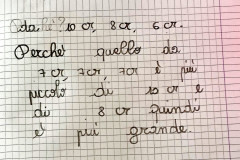 da lì? 10 cr, 8 cr, 6 cr.
Perché quello da
7 cr, 7 cr, 7 cr è più
piccolo di 10 cr e
di 8 cr quindi
è più grande.